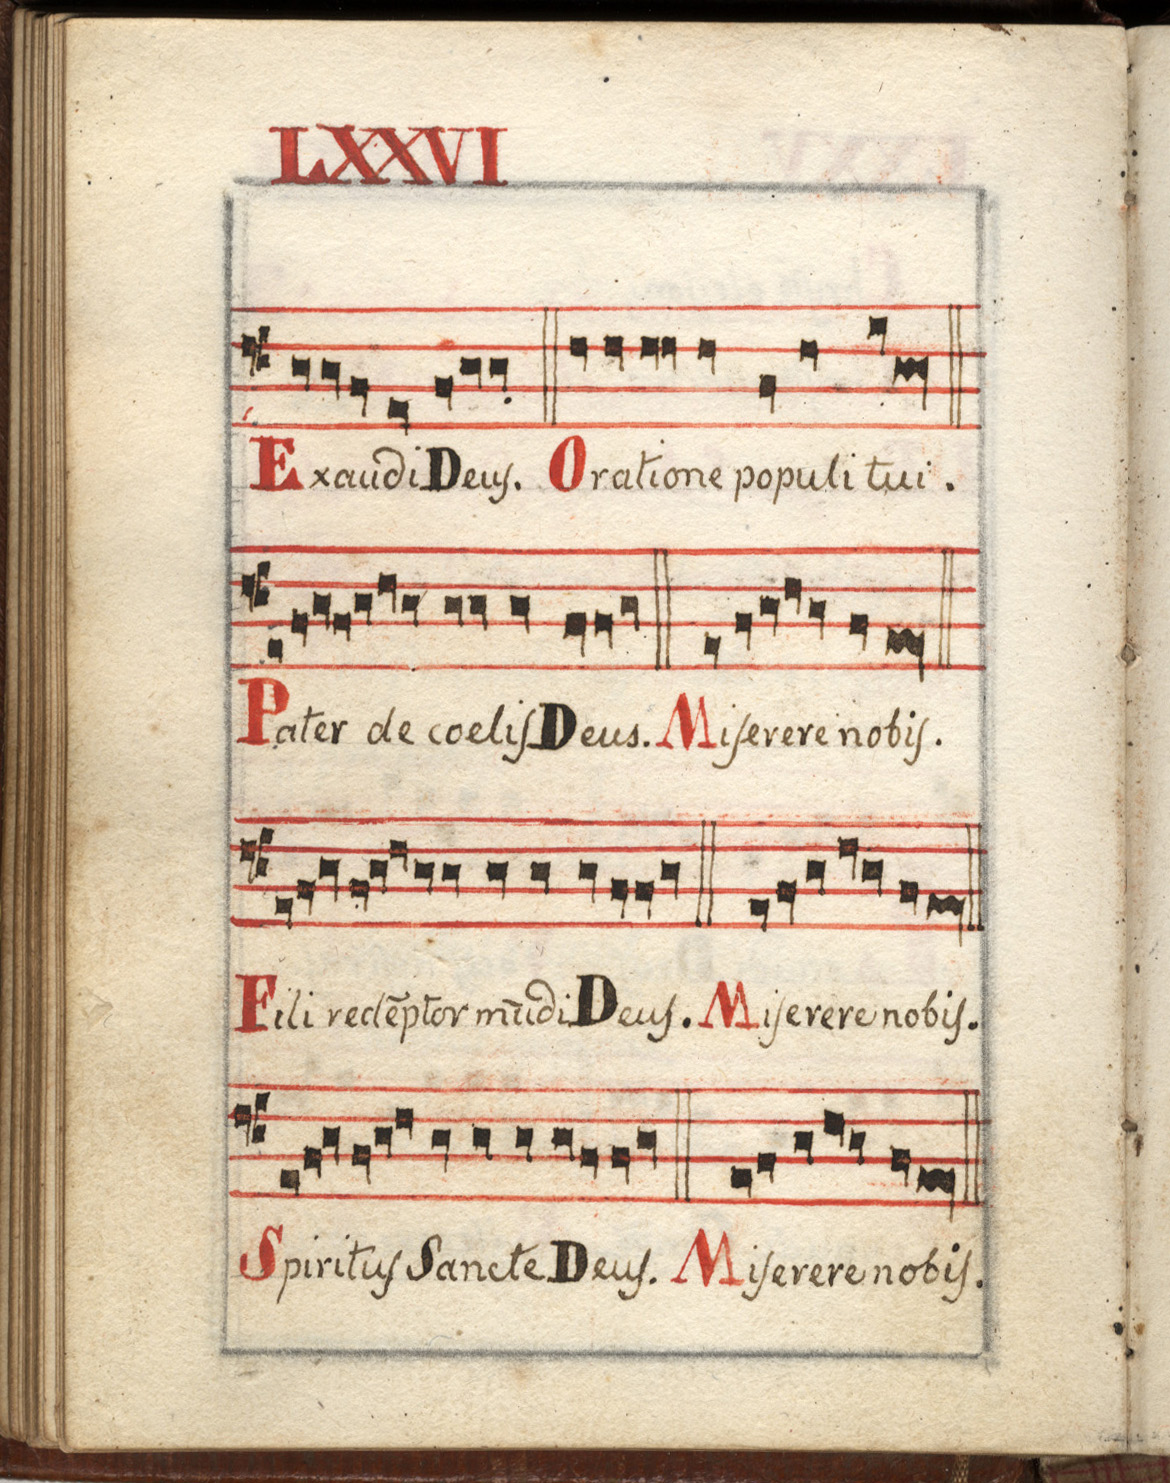 LXXVI
Exaudi Deus. Oratione populi tui.
Pater de coelis Deus. Miserere nobis.
Fili redẽptor mũdi Deus. Miserere nobis.
Spiritus Sancte Deus. Miserere nobis.